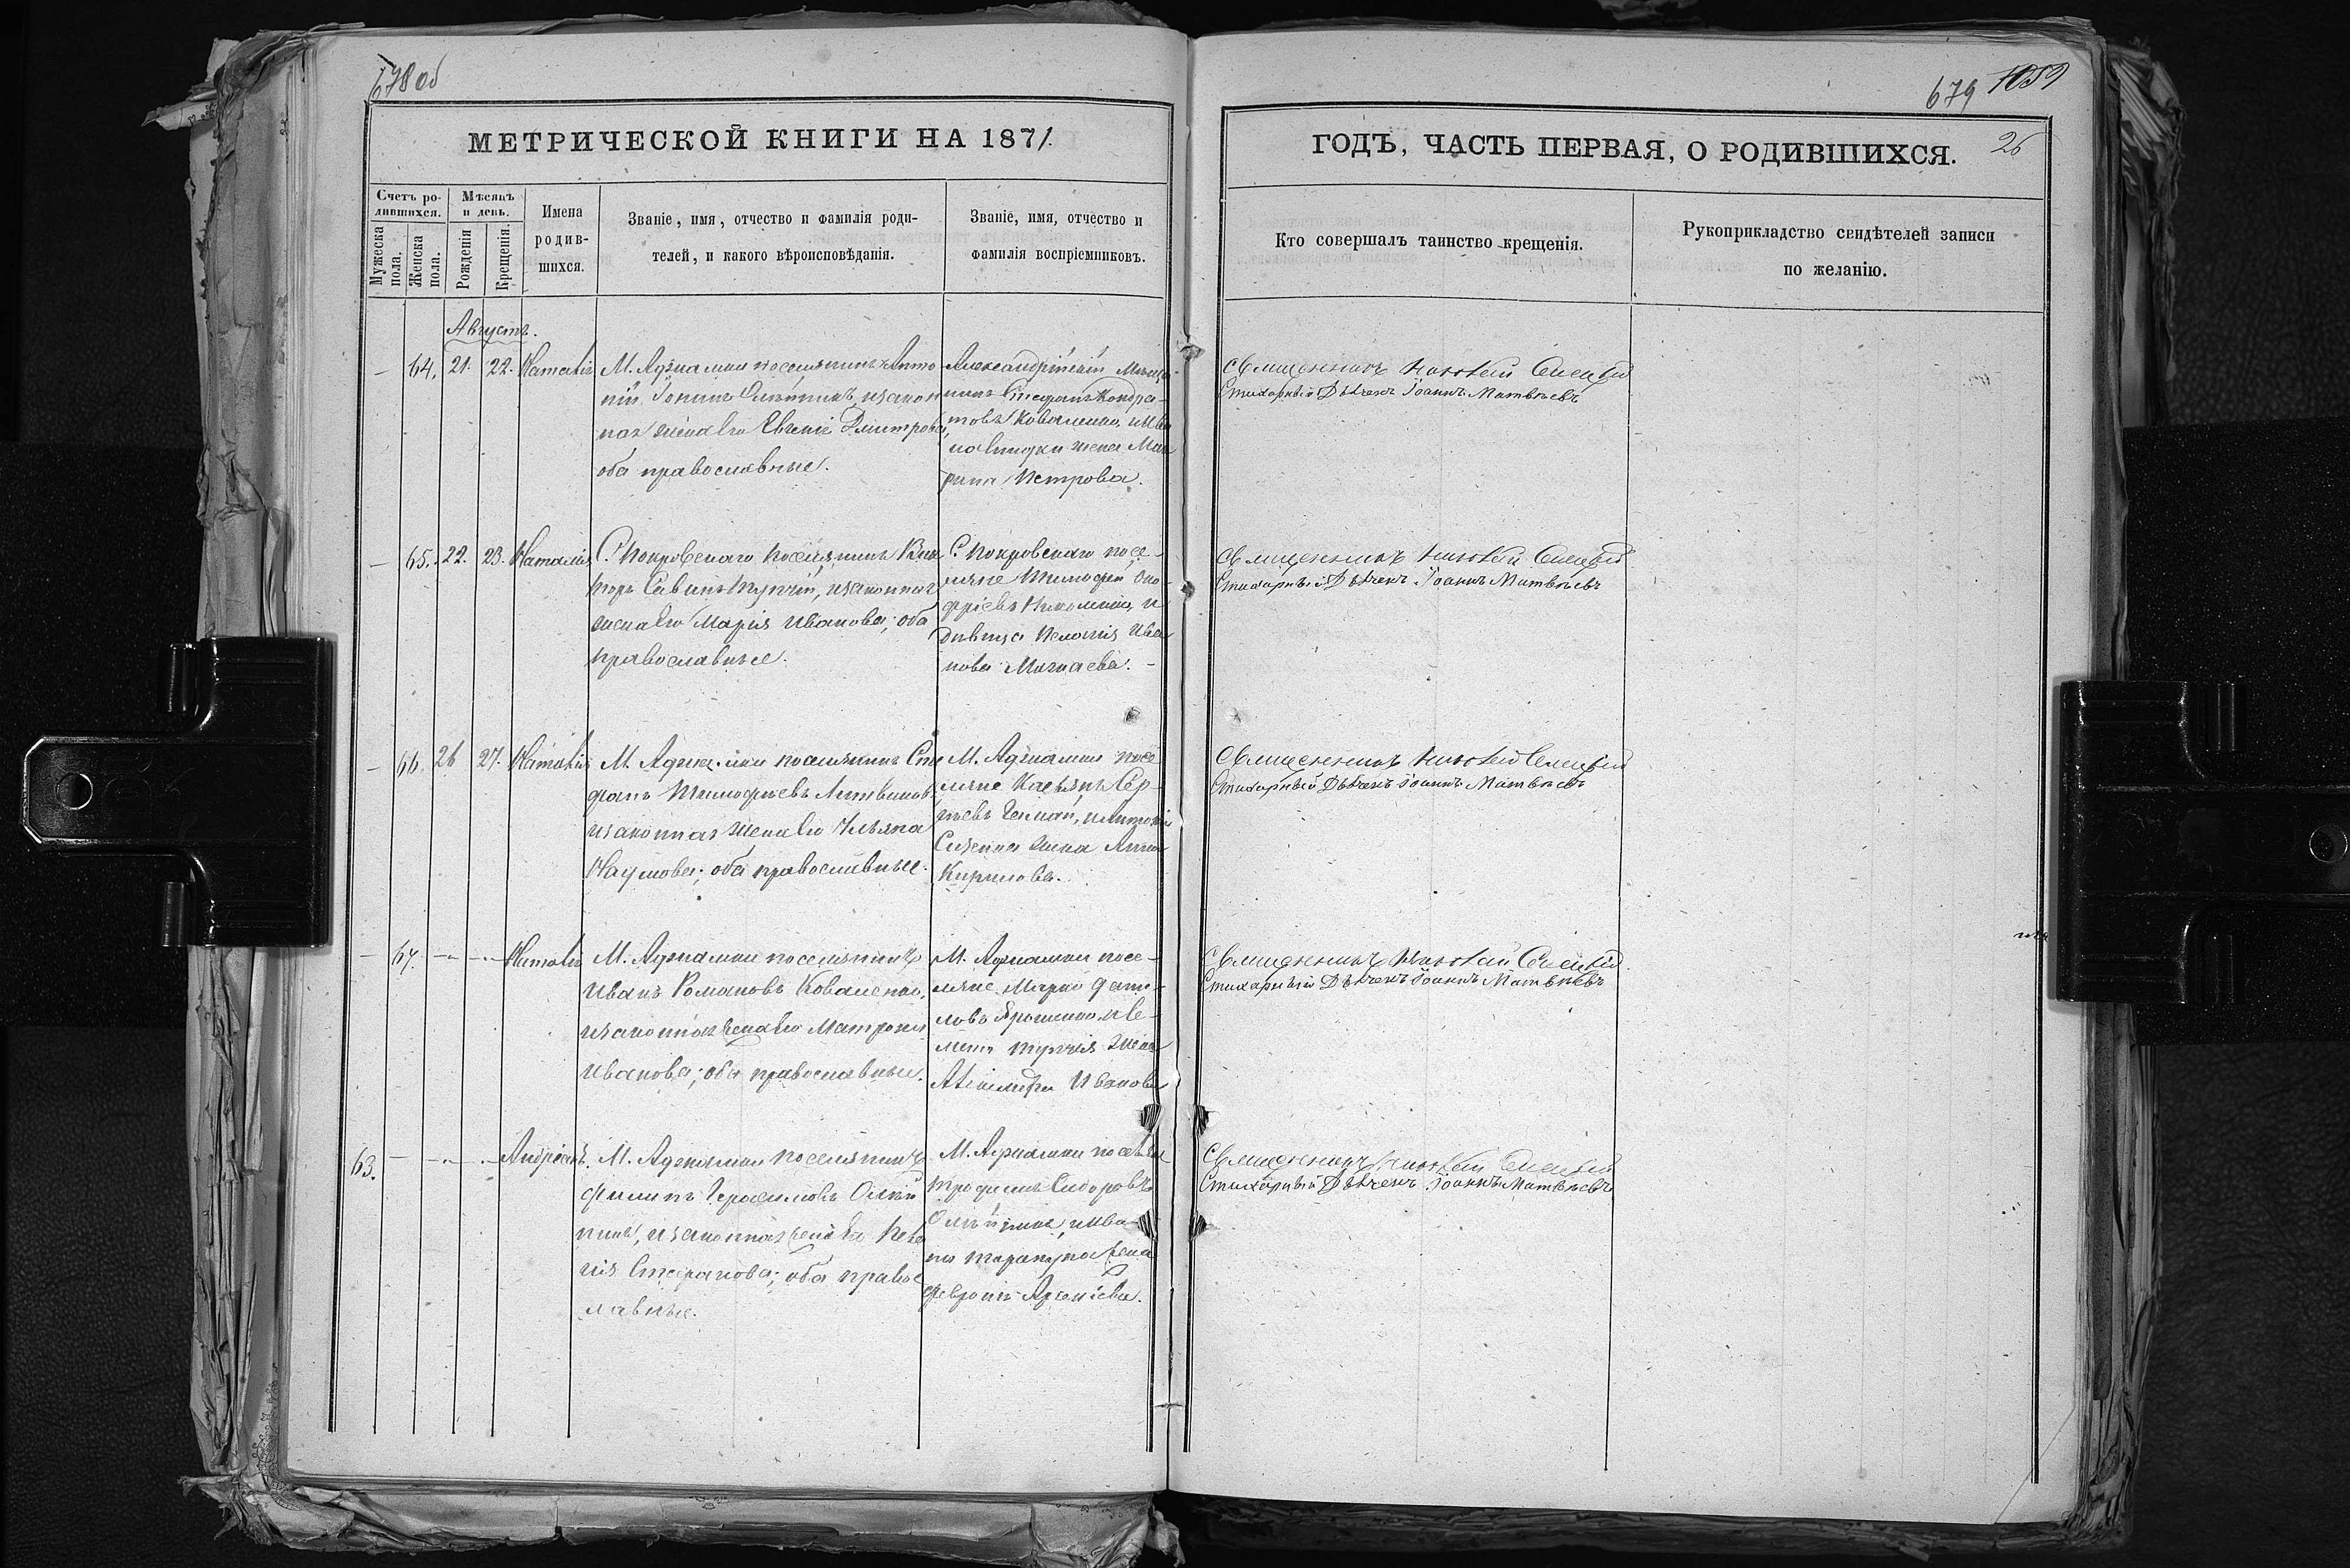 678 об
МЕТРИЧЕСКОЙ КНИГИ НА 1871.
Счетъ ро-
дившихся.
Мужеска
пола.
Женска
пола.
Мѣсяцъ
и день.
Рожденія
Крещенія.
Имена
родив-
шихся.
Званіе, имя, отчество и фамилія роди-
телей, и какого вѣроисповѣданія.
Званіе, имя, отчество и
фамилія воспріемниковъ.
Августъ.
— 64. 21. 22. Наталія
М. Аджамки поселянинъ Анто
ній
ная жена его Евгенія Дмитрова,
оба православные.
Александрійскій мѣща-
нинъ Стефанъ Кондра-
товъ Коваленко, и
жена Ма
рина Петрова.
— 65. 22. 23. Наталія
С. Покровскаго поселянинъ Вик
торъ Савинъ Тупчій, и законная
жена его Марія Иванова; оба
православные.
С. Покровскаго посе-
ляне Тимофей Оно-
фріевъ и
дѣвица Пелагія Ива
нова
— 66. 26 27. Наталія
М. Аджамки поселянинъ Сте
фанъ Тимофѣевъ Литвинов
и законная жена его Ульяна
Наумова; оба православные.
М. Аджамки посе
ляне Касьянъ Сер-
гѣевъ
жена Анна
Кирилова.
— 67. -„- -„- Наталія
М. Аджамки поселянинъ
Иванъ Романовъ Коваленко,
и законная жена его Матрона
Иванова; оба православные.
М. Аджамки посе-
ляне Марко
ловъ Ярошенко, и
Тупчія жена
Иванова
63. — -„- -„- Андреанъ.
М. Аджамки поселянинъ
Филипъ Герасимовъ Олѣй
никъ, и законная жена его Пела
гія Стефанова; оба право
славные.
М. Аджамки поселяне
Трофимъ Сидоровъ
Олѣйникъ, и Ива-
на жена
Феврония Арсеніева.
679 1059
ГОДЪ, ЧАСТЬ ПЕРВАЯ, О РОДИВШИХСЯ. 26
Кто совершалъ таинство крещенія.
Рукоприкладство свидѣтелей записи
по желанію.
Священникъ Николай
Стихарный Дьячекъ Іоаннъ Матвѣевъ
Священникъ Николай
Стихарный Дьячекъ Іоаннъ Матвѣевъ
Священникъ Николай
Стихарный Дьячекъ Іоаннъ Матвѣевъ
Священникъ Николай
Стихарный Дьячекъ Іоаннъ Матвѣевъ
Священникъ Николай
Стихарный Дьячекъ Іоаннъ Матвѣевъ